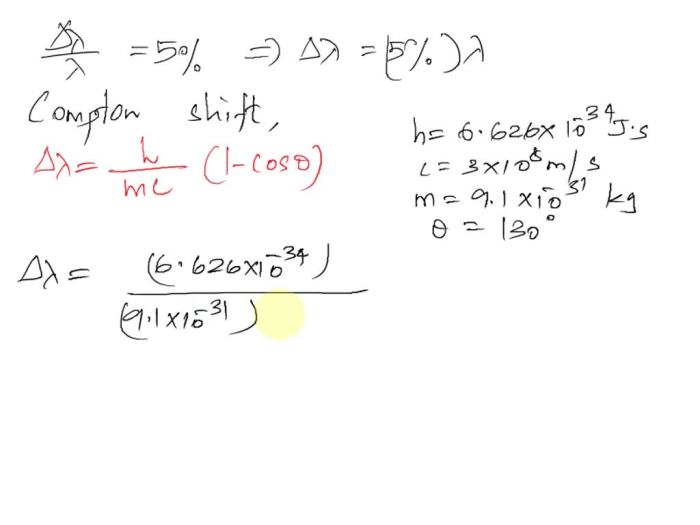 Δλ/λ = 5% ⇒ Δλ = (5%)λ
Compton shift,
Δλ = h/mc (1-cosθ)
h = 6.626×10^-34 J·s
c = 3×10^8 m/s
m = 9.1×10^-31 kg
θ = 130°
Δλ = (6.626×10^-34)/(9.1×10^-31)